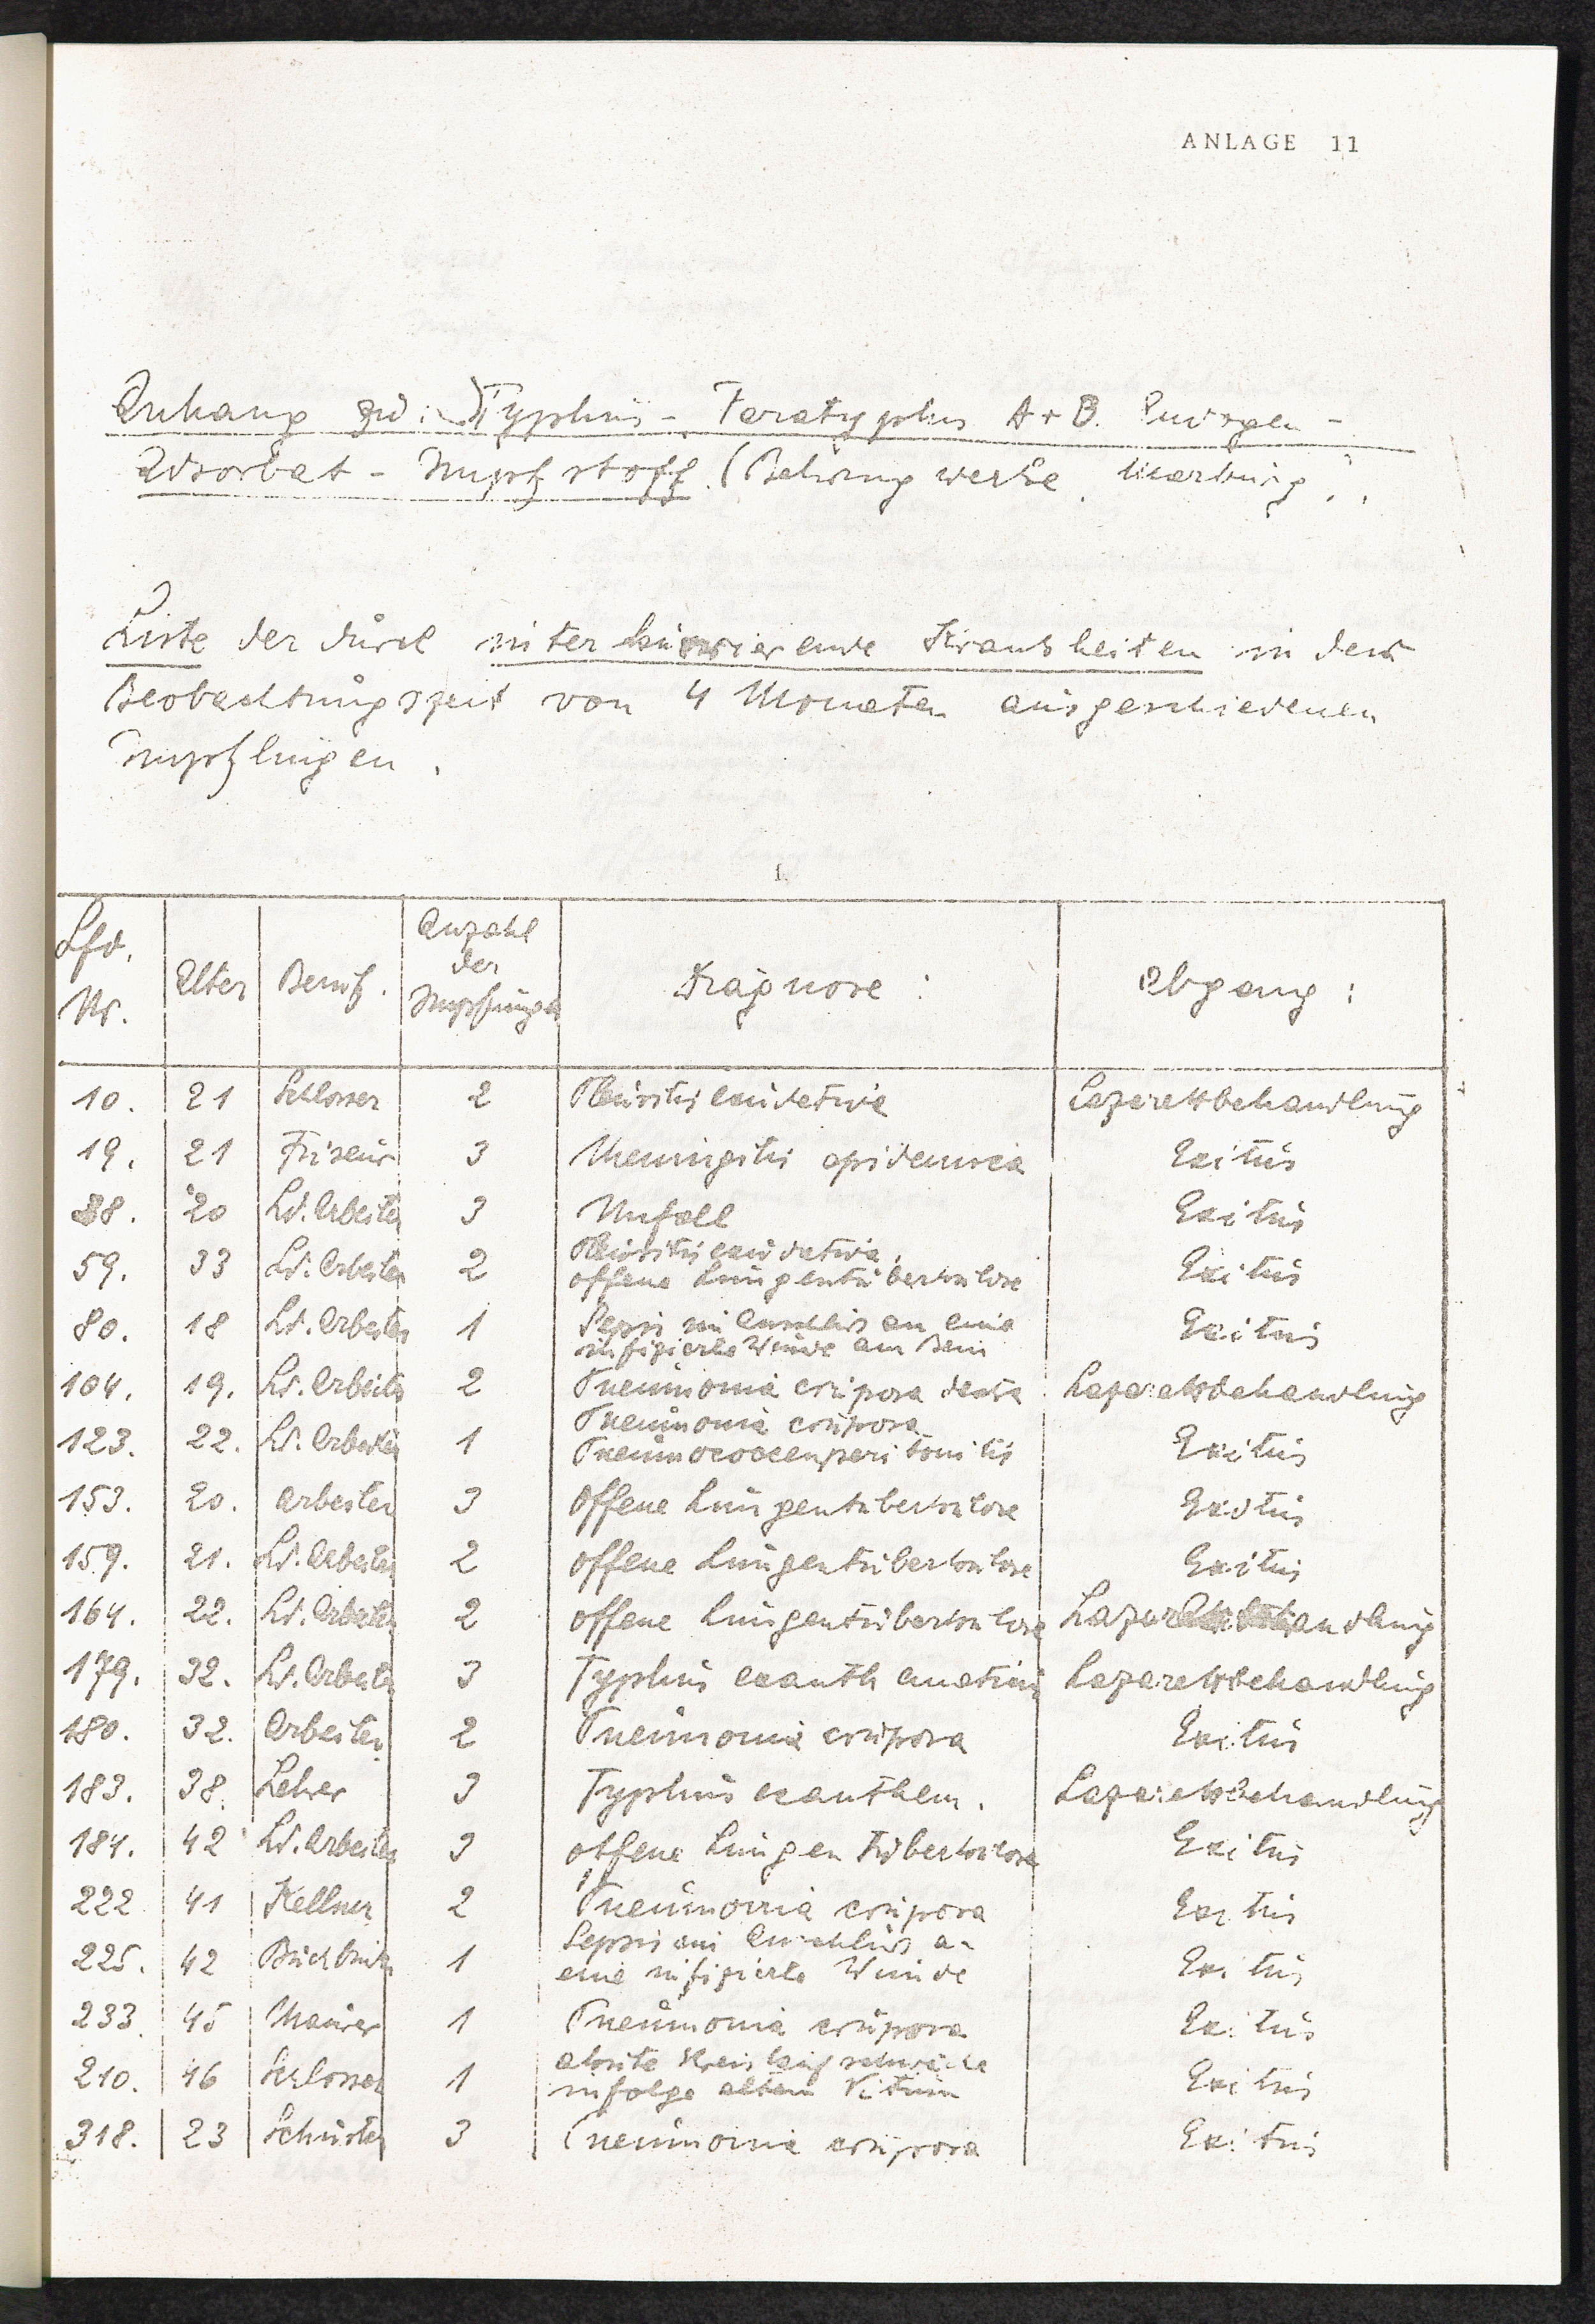 ANLAGE 11
Anhang zu: Typhus - Paratyphus A+B. Ruhr gen -
Adsorbat - Impfstoff (Behringwerke, Marburg).
Liste der durch interkurrierende Krankheiten in der
Beobachtungszeit von 4 Monaten ausgeschiedenen
Impflingen.
1.
Lfd. Nr. Alter Beruf. Anzahl der Impfungen Diagnose: Abgang:
10. 21 Schlosser 2 Pleuritis exudativa Lazarettbehandlung
19. 21 Friseur 3 Meningitis epidemica Exitus
38. 20 Ld. Arbeiter 3 Unfall Exitus
59. 33 Ld. Arbeiter 2 Pleuritis exudativa, offene Lungentuberkulose Exitus
80. 18 Ld. Arbeiter 1 Sepsis im Anschluss an eine infizierte Wunde am Bein Exitus
104. 19. Ld. Arbeiter 2 Pneumonia crüposa dextra Lazarettbehandlung
123. 22. Ld. Arbeiter 1 Pneumonia crüposa Pneumococcenperitonitis Exitus
153. 20. Arbeiter 3 Offene Lungentuberkulose Exitus
159. 21. Ld. Arbeiter 2 offene Lungentuberkulose Exitus
164. 22. Ld. Arbeiter 2 offene Lungentuberkulose Lazarettbehandlung
179. 32. Ld. Arbeiter 3 Typhus exanthematicus Lazarettbehandlung
180. 32. Arbeiter 2 Pneumonia crüposa Exitus
183. 38. Lehrer 3 Typhus exanthem. Lazarettbehandlung
184. 42 Ld. Arbeiter 3 offene Lungentuberkulose Exitus
222 41 Kellner 2 Pneumonia crüposa Exitus
225. 42 Buchbinder 1 Sepsis im Anschluss an eine infizierte Wunde Exitus
233. 45 Maurer 1 Pneumonia crüposa Exitus
210. 46 Schlosser 1 akute Kreislaufschwäche infolge altem Vitium Exitus
318. 23 Schuster 3 Pneumonia crüposa Exitus